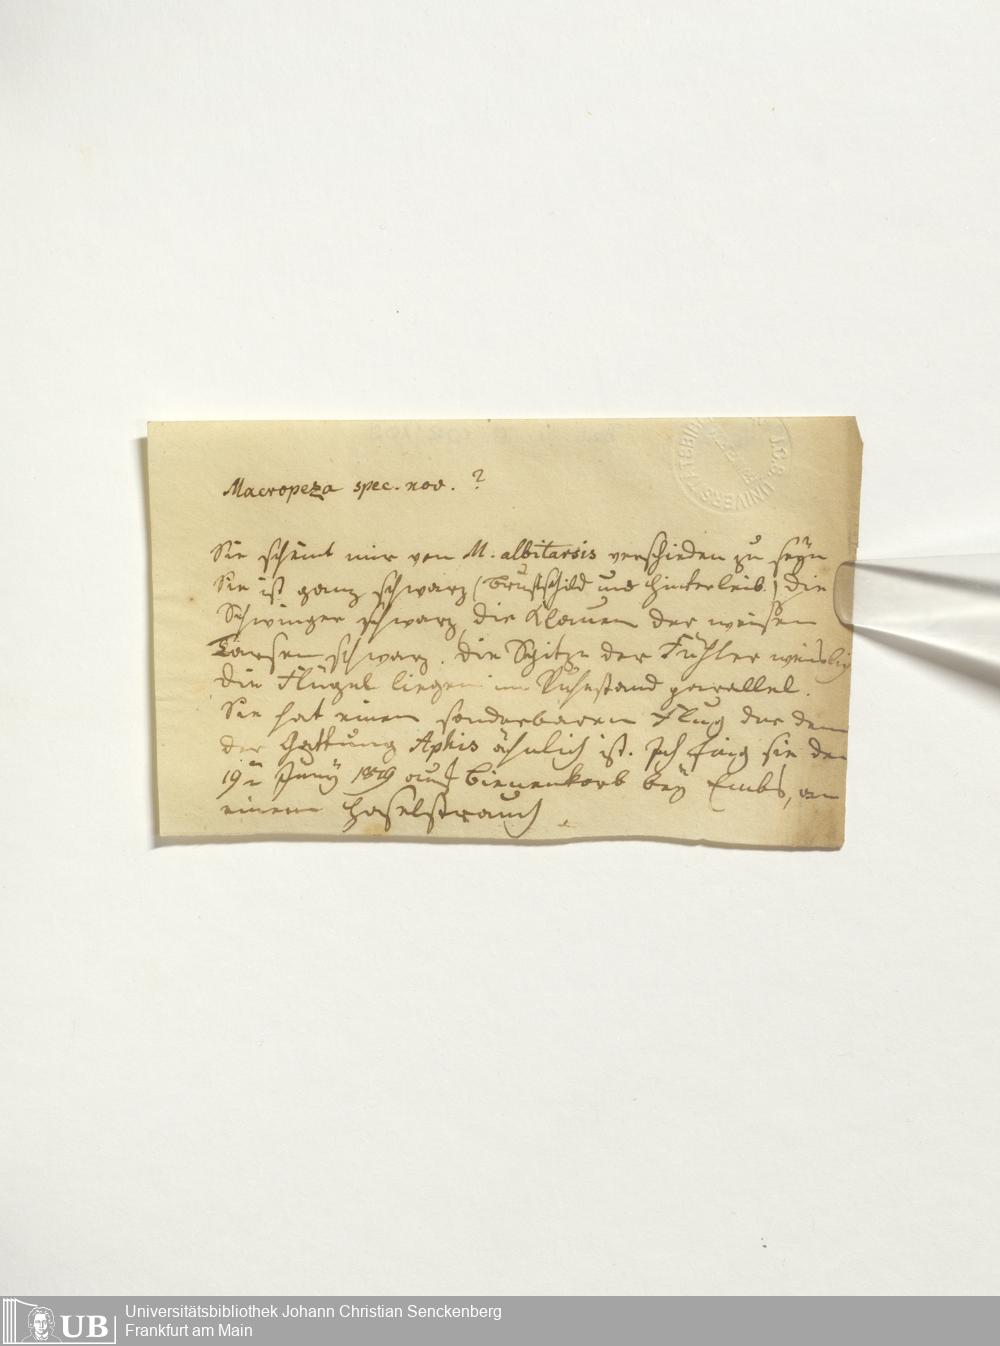 Macropeza spec. nov. ?
Sie scheint mir von M. albitarsis verschieden zu seyn
Sie ist ganz schwarz (Brustschild und Hinterleib.) Die
Schwinger schwarz, die Klauen der weissen
Tarsen schwarz. die Spitze der Fühler weislig
die Flügel liegen im Ruhestand parallel.
Sie hat einen sonderbaren Flug der dem
der Gattung Aphis ähnlich ist. Ich fing sie den
19n Juny 1819 auf Bienenkorb bey Embs, an
einem Haselstrauch.
J.C.S. UNIVERSITÄTSBIBL
Universitätsbibliothek Johann Christian Senckenberg
Frankfurt am Main
UB